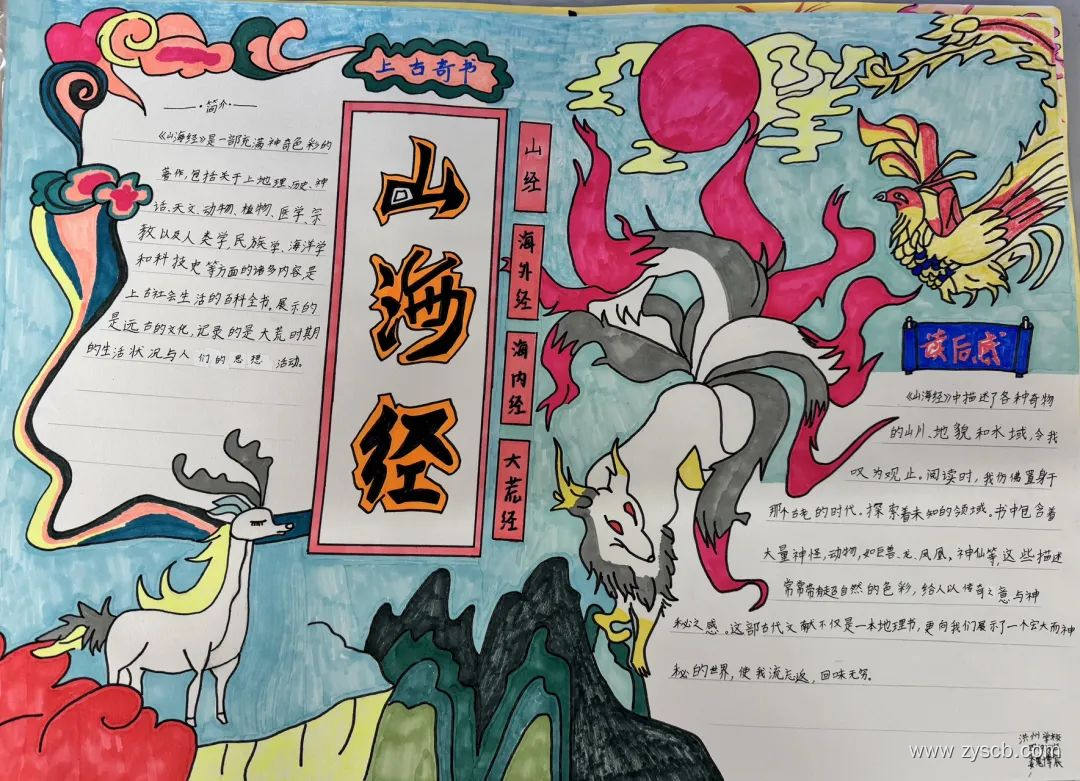 上古奇书
简介
《山海经》是一部充满神奇色彩的
著作,包括关于上地理、历史、神
话、天文、动物、植物、医学、宗
教以及人类学、民族学、海洋学
和科技史等方面的诸多内容是
上古社会生活的百科全书。展示的
是远古的文化,记录的是大荒时期
的生活状况与人们的思想活动。
山海经
山经
海外经
海内经
大荒经
读后感
《山海经》中描述了各种奇物
的山川、地貌和水域,令我
叹为观止。阅读时,我仿佛置身于
的时代。探索着未知的领域。书中包含着
大量神怪,动物,如巨兽、龙、凤凰、神仙等,这些描述
常常带超自然的色彩,给人以传奇之意与神
秘之感。这部古代文献不仅是一本地理书,更向我们展示了一个宏大而神
秘的世界,使我流忘返,回味无穷。
洪州学校
www.zyscb.com